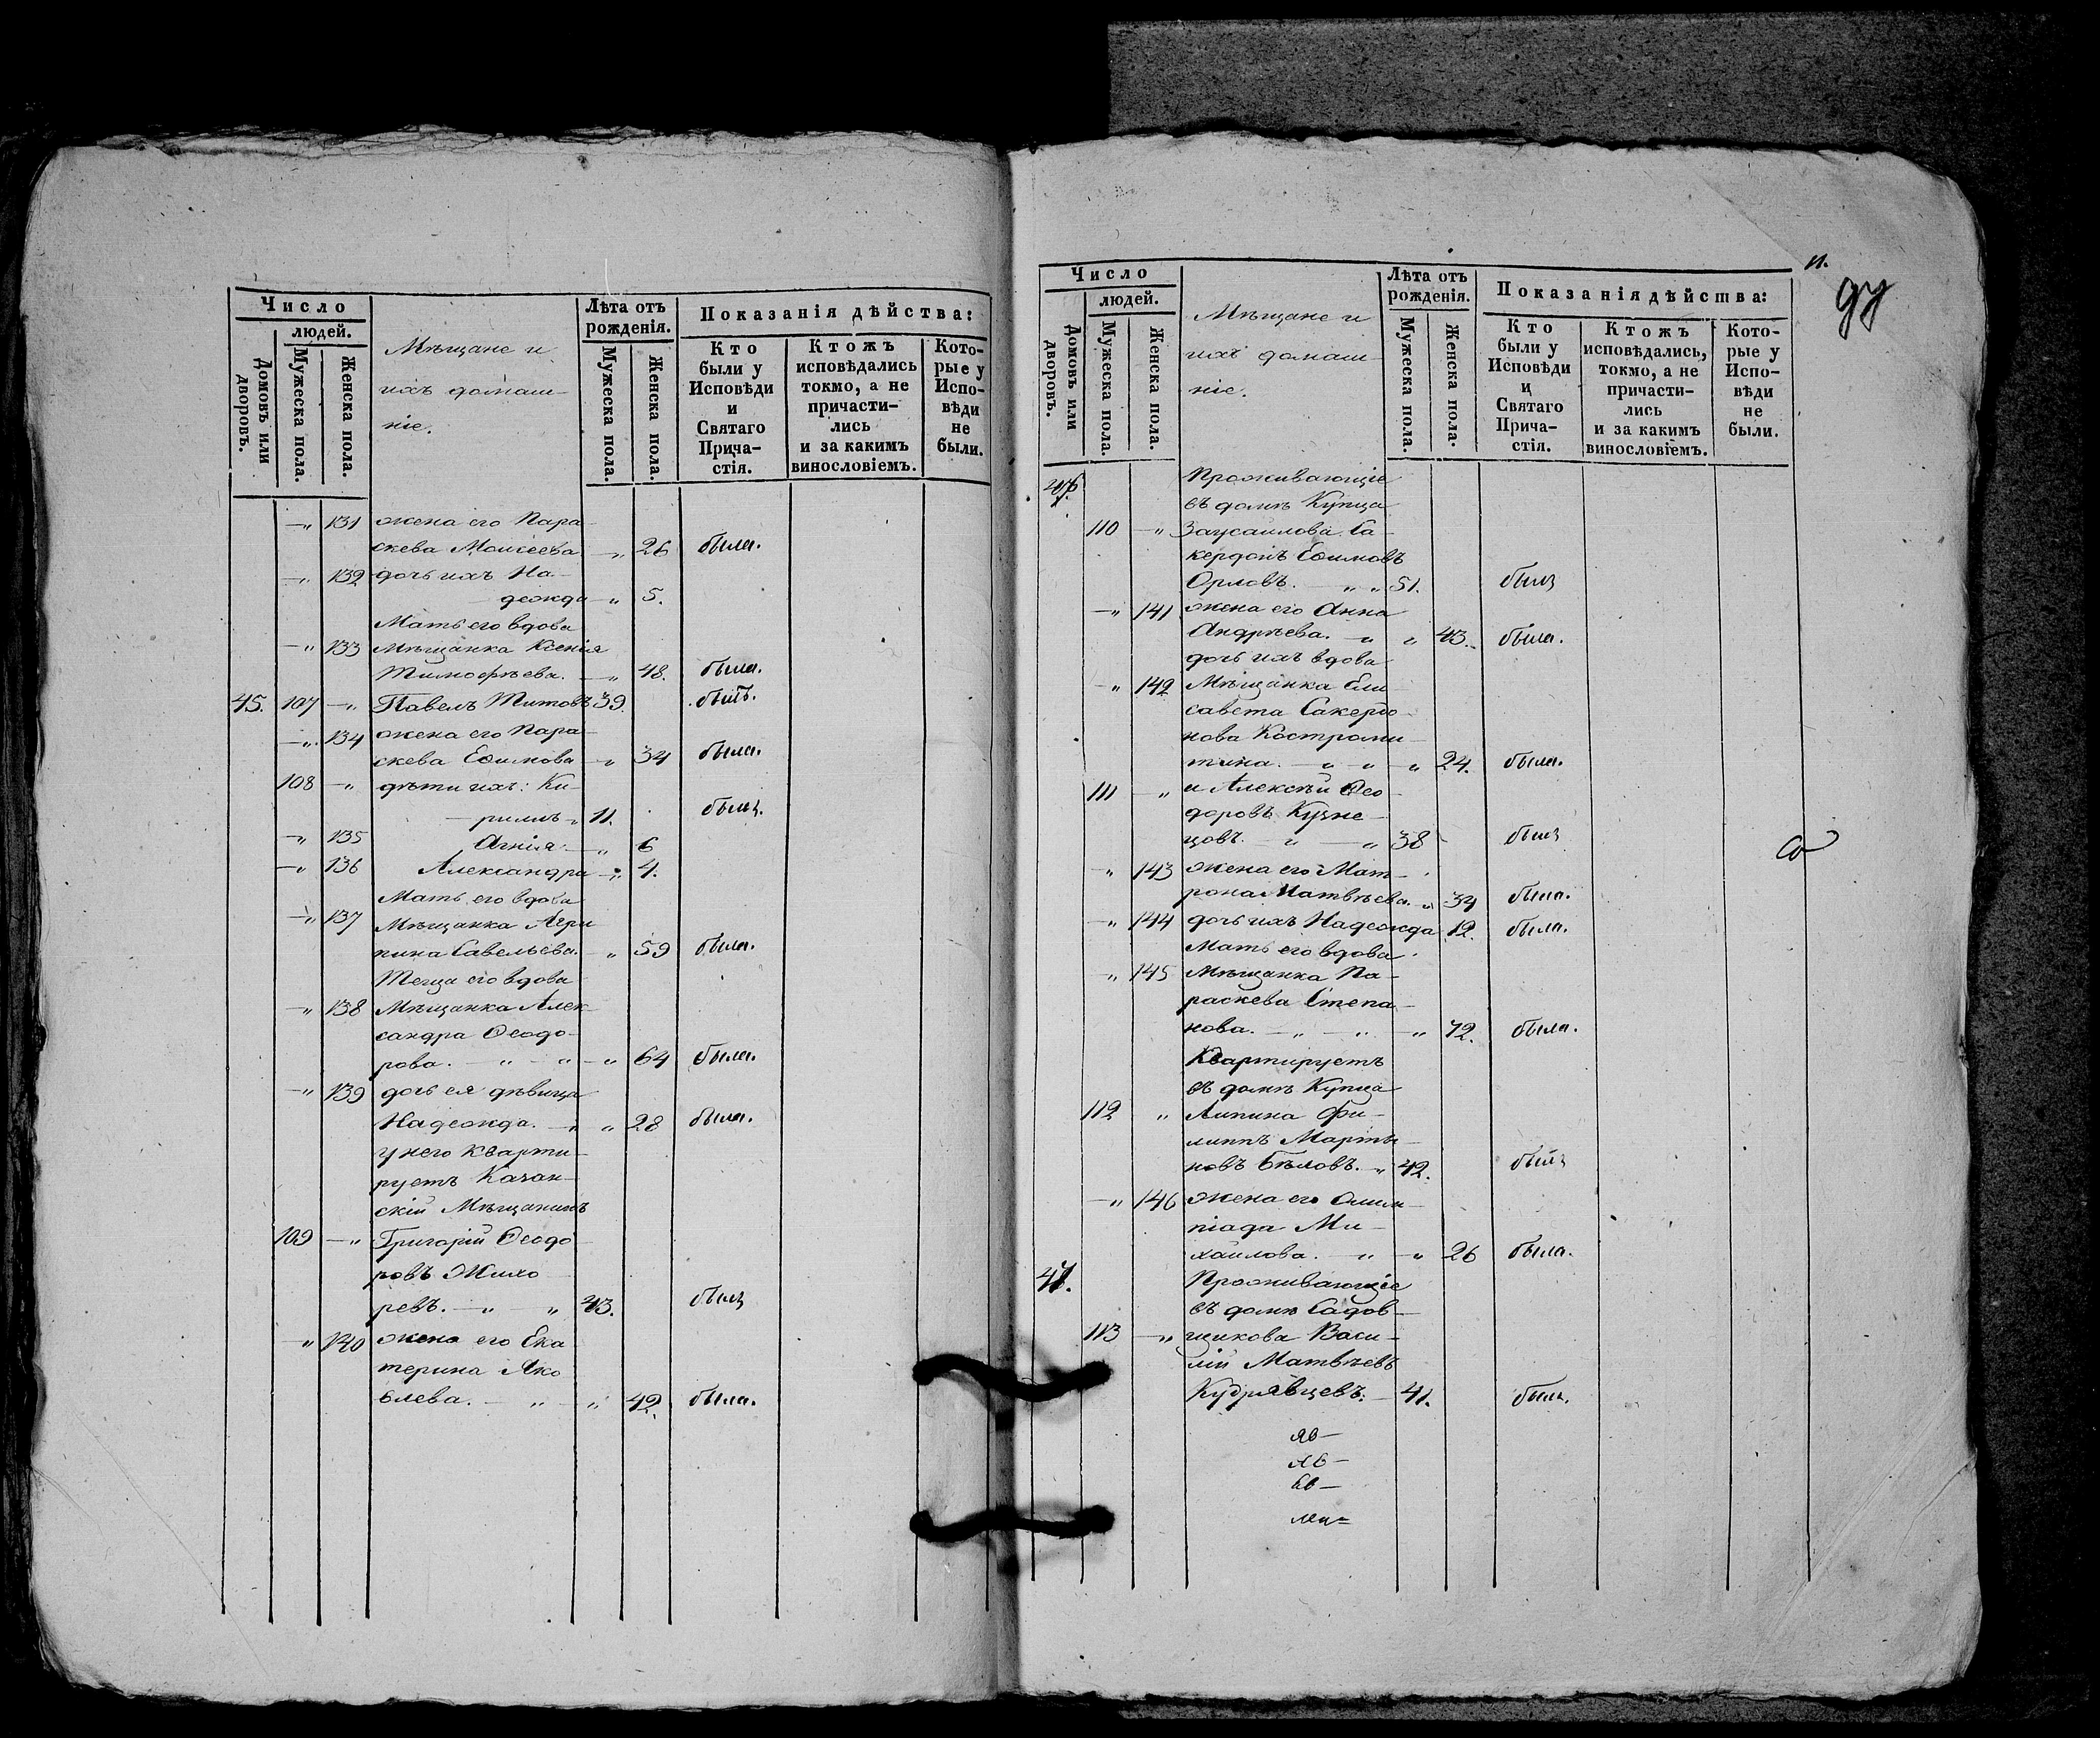 Число
людей.
Домовъ или дворовъ.
Мужеска пола.
Женска пола.
Мѣщане и
ихъ домаш-
ніе.
Лѣта отъ
рожденія.
Мужеска пола.
Женска пола.
Показанія дѣйства:
Кто
были у
Исповѣди
и
Святаго
Прича-
стія.
Ктожъ
исповѣдались
токмо, а не
причасти-
лись
и за какимъ
винословіемъ.
Кото-
рые у
Испо-
вѣди
не
были.
—„ 131 жена его Пара-
скева Моисеева —„ 26 была.
—„ 132 дочь ихъ На-
дежда —„ 5.
Мать его вдова
—„ 133 Мѣщанка Ксенія
Тимофѣева. —„ 48. была.
45. 107 —„ Павелъ Титовъ 39. былъ.
—„ 134 жена его Пара-
скева Ефимова —„ 34 была.
108 —„ дѣти ихъ: Ки-
риллъ „ 11. былъ.
—„ 135 Агнія —„ 6
—„ 136 Александра —„ 4.
Мать его вдова
—„ 137 Мѣщанка Агри
пина Савельева. —„ 59 была.
Теща его вдова
—„ 138 Мѣщанка Алек-
сандра Ѳеодо-
рова. — „ — „ —„ 64 была.
—„ 139 дочь ея дѣвица
Надежда. —„ „ 28 была.
у него кварти-
руетъ Казан-
скій Мѣщанинъ
109 —„ Григорій Ѳеодо
ровъ Жихо
ревъ. —„ „ 43. былъ
„ 140 жена его Ека
терина Яко
влева. — „ — „ 42. была.
Число
людей.
Домовъ или дворовъ.
Мужеска пола.
Женска пола.
Мѣщане и
ихъ домаш-
ніе.
Лѣта отъ
рожденія.
Мужеска пола.
Женска пола.
Показанія дѣйства:
Кто
были у
Исповѣди
и
Святаго
Прича-
стія.
Ктожъ
исповѣдались,
токмо, а не
причасти-
лись
и за какимъ
винословіемъ.
Кото-
рые у
Испо-
вѣди
не
были.
46. Проживающіе
въ домѣ Купца
110 —„ Заусаилова Са-
кердонъ Ефимовъ
Орловъ. — „ „ 51. былъ
—„ 141 жена его Анна
Андрѣева. —„ „ 43. была.
дочь ихъ вдова
—„ 142 Мѣщанка Ели-
савета Сакердо-
нова Костроми-
тина. —„ —„ —„ 24. была.
111 —„ и Алексѣй Ѳео-
доровъ Кузне-
цовъ. —„ —„ 38 былъ
„ 143 жена его Мат-
рона Матвѣева. „ 34 была.
—„ 144 дочь ихъ Надежда 12. была.
Мать его вдова
—„ 145 Мѣщанка Па-
раскева Степа-
нова. —„ —„ —„ 72. была.
Квартируетъ
въ домѣ Купца
112 „ Лапина Фи-
липпъ Марты-
новъ Бѣловъ. „ 42. былъ
—„ 146 жена его Олим-
піада Ми-
хайлова. —„ —„ 26 была.
47. Проживающіе
въ домѣ Садов-
113 —„ щикова Васи-
лій Матвѣевъ
Кудрявцевъ. — 41. былъ.